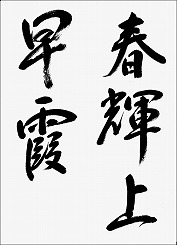 春輝上
早霞